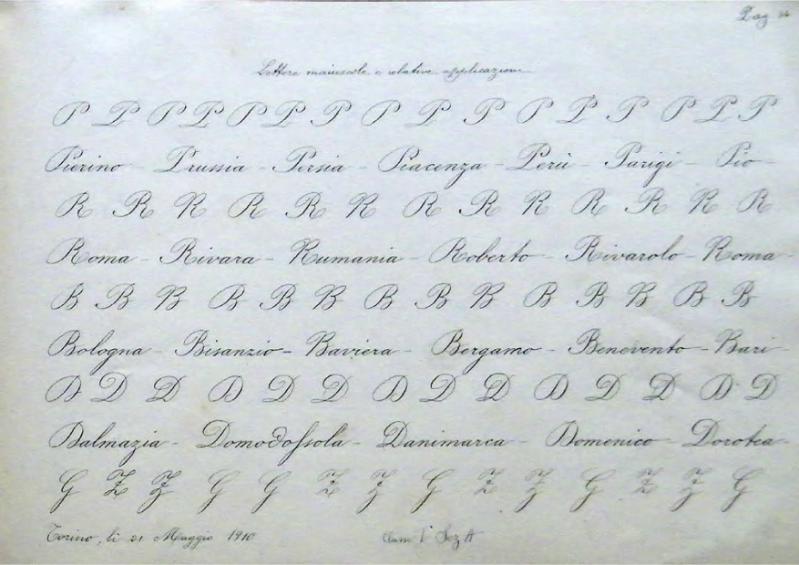 Pag
Lettere maiuscole e relative applicazioni
P P P P P P P P P P P P P P P
Pierino - Prussia - Persia - Piacenza - Perù - Parigi - Pio
R R R R R R R R R R R R R
Roma - Rivara - Rumania - Roberto - Rivarolo - Roma
B B B B B B B B B B B B B B
Bologna - Bisanzio - Baviera - Bergamo - Benevento - Bari
D D D D D D D D D D D D D D
Dalmazia - Domodossola - Danimarca - Domenico - Dorotea
G Z Z G G Z Z G G Z Z G Z Z G
Torino, li 21 Maggio 1910
Classe 1ª Sez A